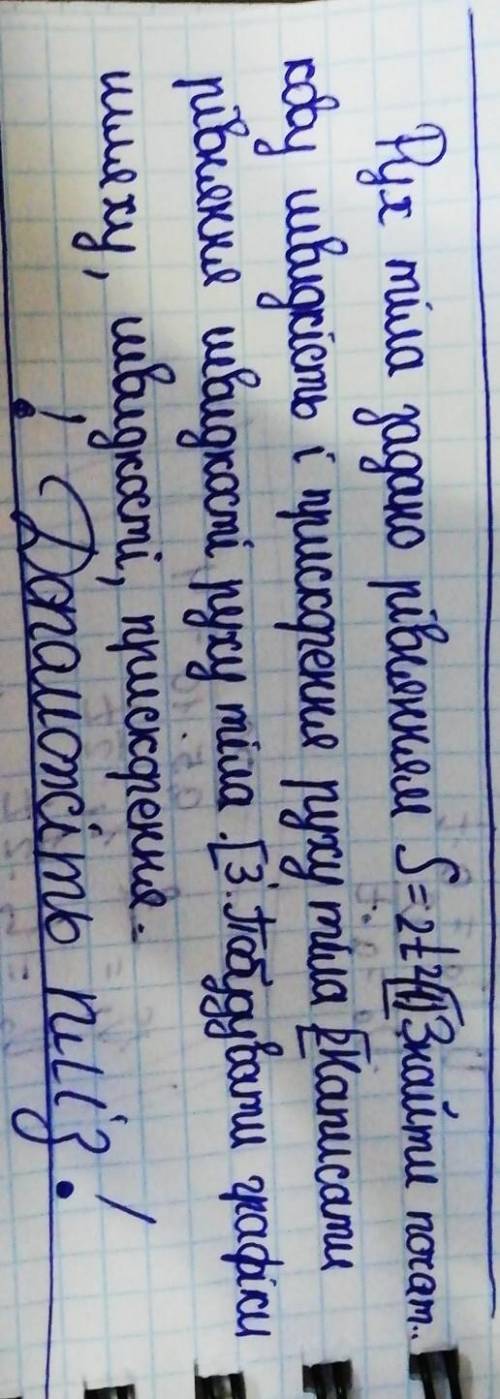 Рух тіла задано рівнянням S=2t² [1) Знайти почат..
кову швидкість і прискорення руху тіла [2 Написати
рівняння швидкості руху тіла. [3. Побудувати графіки
шляху, швидкості, прискорення.
! Допоможіть плііз!